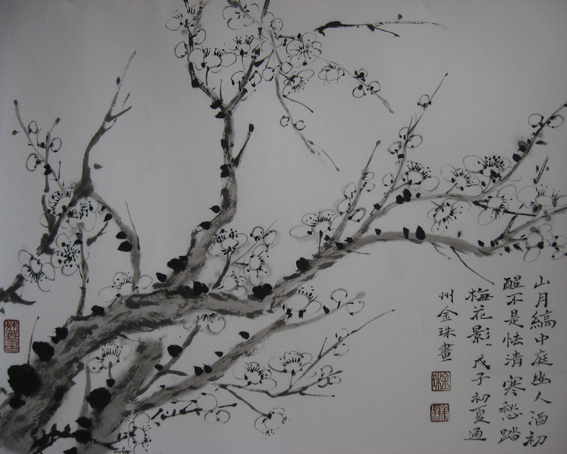 山月縞中庭幽人酒初
醒不是怯清寒愁踏
梅花影戊子初夏通
州金珠畫